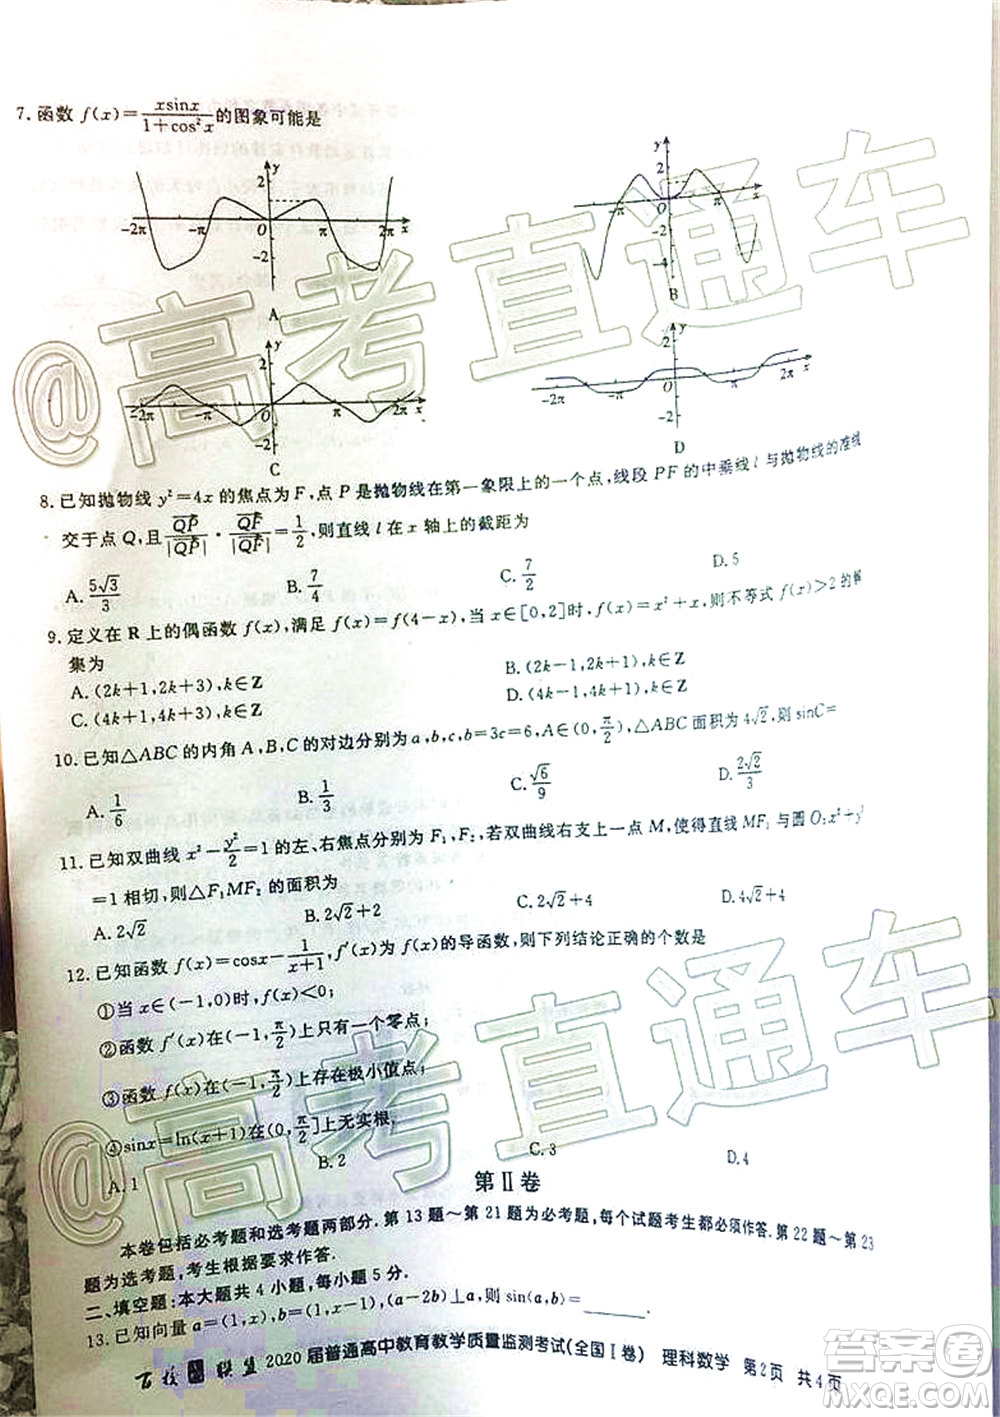 7. 函数 f(x)=xsinx/(1+cos²x)的图象可能是
A
B
C
D
8. 已知抛物线 y²=4x 的焦点为 F,点 P 是抛物线在第一象限上的一个点,线段 PF 的中乘线 l 与抛物线的准线
交于点 Q,且 QP/|QP| · QF/|QF| = 1/2,则直线 l 在 x 轴上的截距为
A. 5√3/3 B. 7/4 C. 7/2 D. 5
9. 定义在 R 上的偶函数 f(x),满足 f(x)=f(4-x),当 x∈[0,2]时,f(x)=x²+x,则不等式 f(x)>2 的解
集为
A. (2k+1,2k+3),k∈Z B. (2k-1,2k+1),k∈Z
C. (4k+1,4k+3),k∈Z D. (4k-1,4k+1),k∈Z
10. 已知△ABC 的内角 A,B,C 的对边分别为 a,b,c,b=3c=6,A∈(0,π/2),△ABC 面积为 4√2,则 sinC=
A. 1/6 B. 1/3 C. √6/9 D. 2√2/3
11. 已知双曲线 x²-y²/2=1 的左、右焦点分别为 F₁,F₂,若双曲线右支上一点 M,使得直线 MF₁ 与圆 O:x²+y²
=1 相切,则△F₁MF₂ 的面积为
A. 2√2 B. 2√2+2 C. 2√2+4 D. 4√2
12. 已知函数 f(x)=cosx-1/(x+1),f′(x)为 f(x)的导函数,则下列结论正确的个数是
①当 x∈(-1,0)时,f(x)<0;
②函数 f′(x)在(-1,π/2)上只有一个零点;
③函数 f(x)在(-1,π/2)上存在极小值点;
④sinx=ln(x+1)在(0,π/2]上无实根.
A. 1 B. 2 C. 3 D. 4
第Ⅱ卷
本卷包括必考题和选考题两部分.第 13 题～第 21 题为必考题,每个试题考生都必须作答.第 22 题～第 23
题为选考题,考生根据要求作答.
二、填空题:本大题共 4 小题,每小题 5 分.
13. 已知向量 a=(1,x),b=(1,x-1),(a-2b)⊥a,则 sin⟨a,b⟩=______.
百校联盟 2020 届普通高中教育教学质量监测考试(全国Ⅰ卷) 理科数学 第2页 共4页
@高考直通车
@高考直通车
答案圈
MXQE.COM